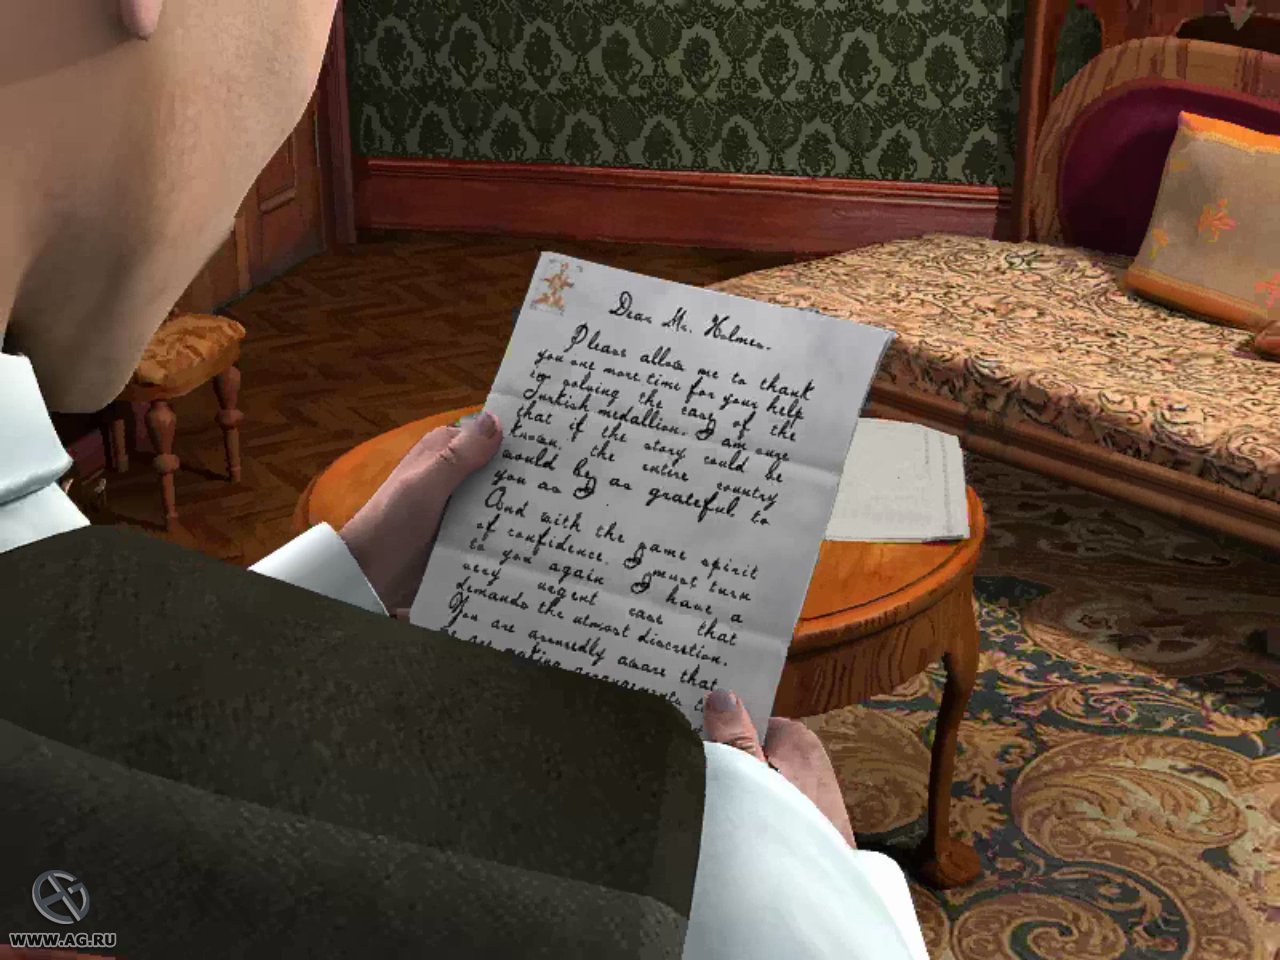 Dear Mr. Holmes.
Please allow me to thank
you one more time for your help
in solving the case of the
Turkish medallion. I am sure
that if the story could be
known, the entire country
would be as grateful to
you as I.
And with the same spirit
of confidence. I must turn
to you again. I have a
very urgent case that
demands the utmost discretion.
You are assuredly aware that
making arrangements
WWW.AG.RU